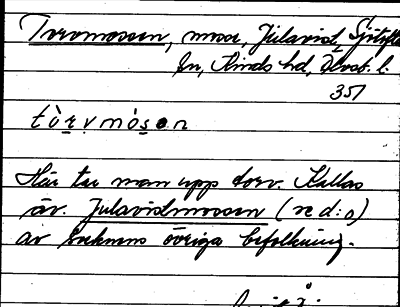 Torvmossen, mosse, Julavid,
sn, Kinds hd, Älvsb. l.
351
tòrvmòsen
Här tar man upp torv. Kallas
äv. Julavidmossen (se d:o)
av socknens övriga befolkning.